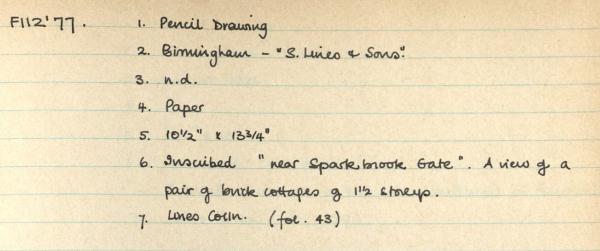 F112'77. 1. Pencil Drawing
2. Birmingham - "S. Lines & Sons".
3. n.d.
4. Paper
5. 10 1/2" x 13 3/4"
6. Inscribed "near Sparkbrook Gate". A view of a
pair of brick cottages of 1 1/2 storeys.
7. Lines Colln. (fol. 43)